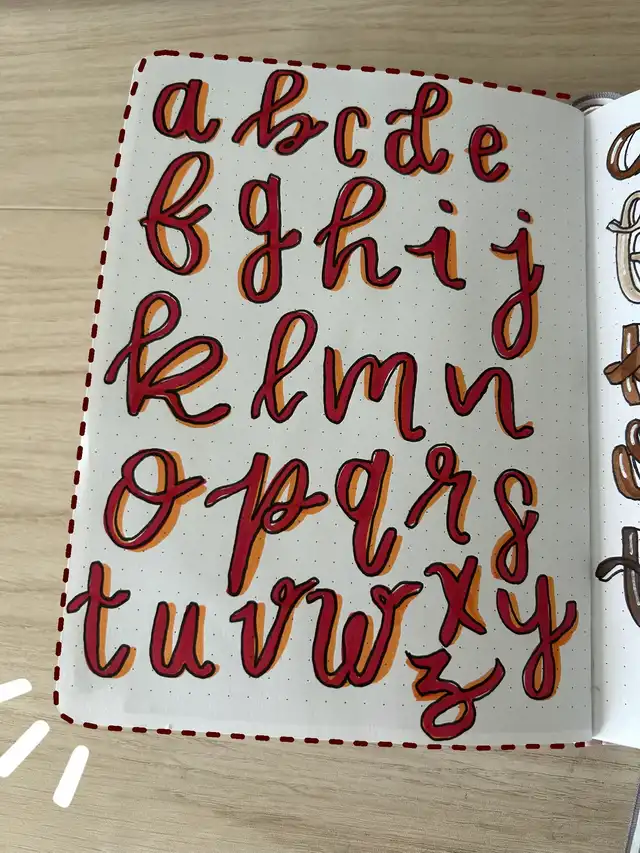 a b c d e
f g h i j
k l m n
o p q r s
t u v w x y
z